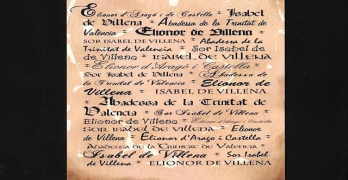 Elionor d'Aragó i de Castella Isabel
de Villena Abadessa de la Trinitat de
Valencia Elionor de Villena
SOR ISABEL DE VILLENA Abadessa de la
Trinitat de Valencia Sor Isabel de
de Villena ISABEL DE VILLENA
Elionor d'Aragó i Castella
Sor Isabel de Villena Abadessa de
la Trinitat de Valencia Elionor de
Villena ISABEL DE VILLENA
Abadessa de la Trinitat de
Valencia Sor Isabel de Villena
Elionor de Villena Elionor d'Aragó i Castella
SOR ISABEL DE VILLENA Elionor
de Villena Elionor d'Arago i Castella
Abadessa de la Trinitat de Valencia
Isabel de Villena Sor Isabel
de Villena ELIONOR DE VILLENA